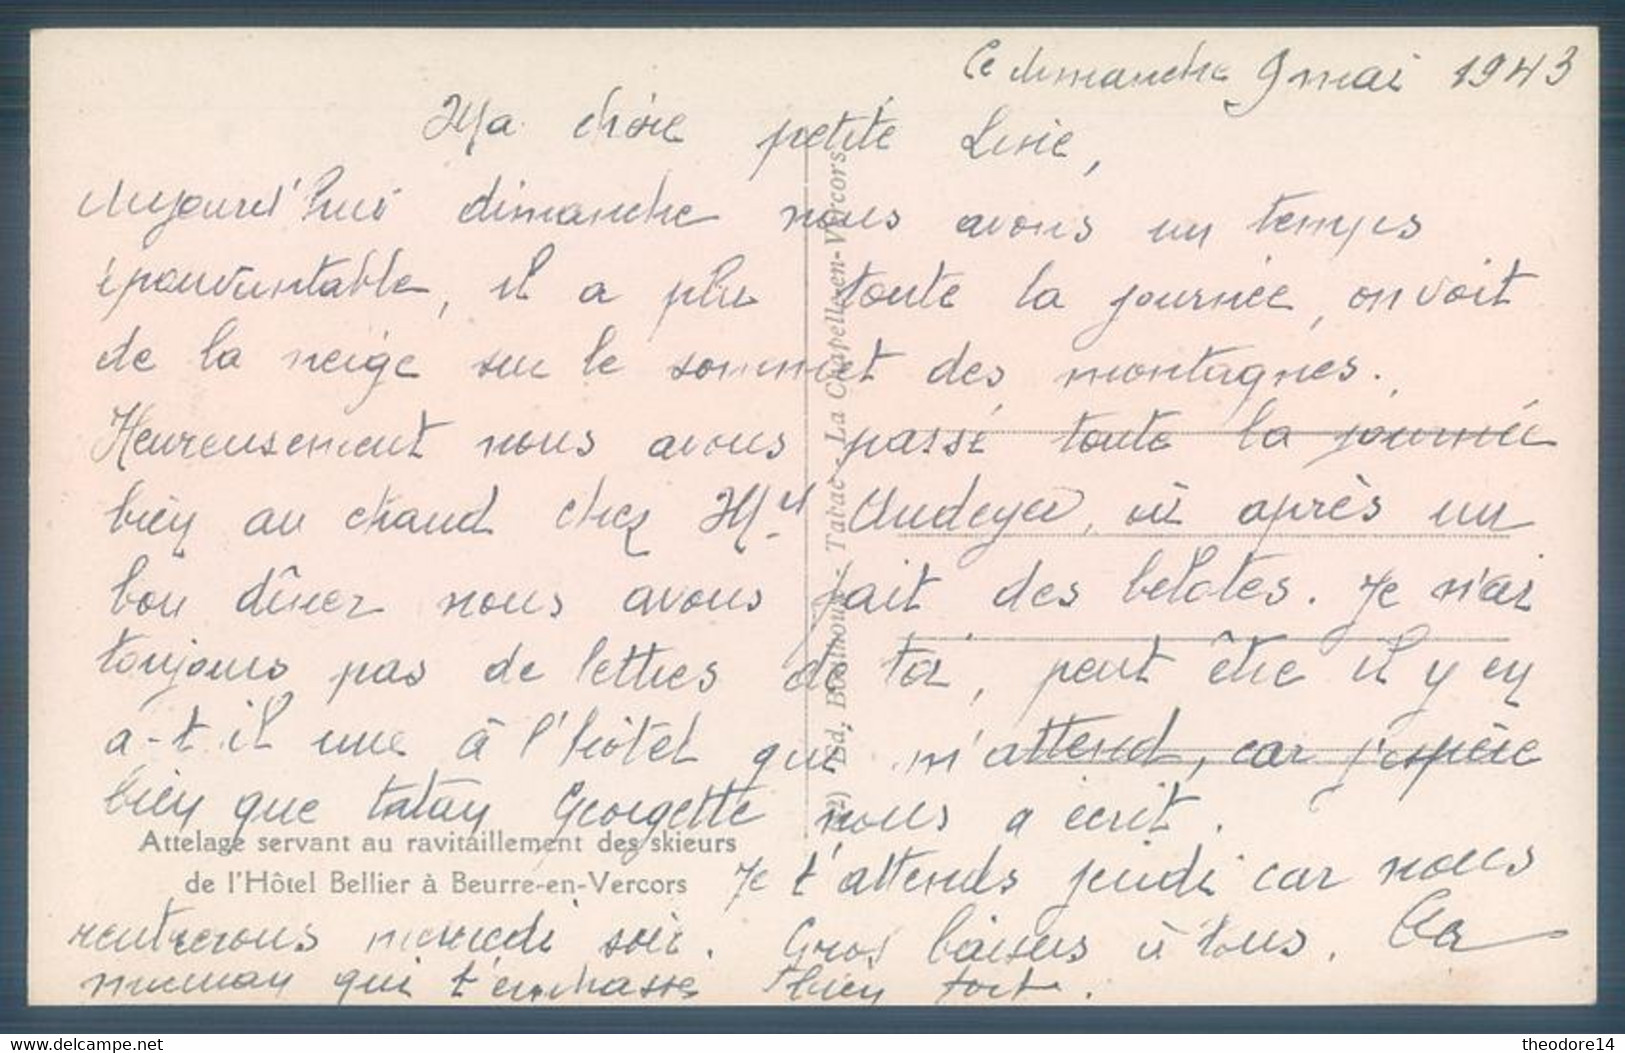 Ce dimanche 9 mai 1943
Ma chère petite Lisie,
Aujourd'hui dimanche nous avons un temps
épouvantable, il a plu toute la journée, on voit
de la neige sur le sommet des montagnes.
Heureusement nous avons passé toute la journée
bien au chaud chez Mr Audeyer, où après un
bon dîner nous avons fait des belotes. Je n'ai
toujours pas de lettres de toi, peut être il y en
a-t-il une à l'hôtel qui m'attend, car j'espère
bien que tatan Georgette nous a écrit.
Je t'attends jeudi car nous
rentrerons mercredi soir. Gros baisers à tous. Ta
maman qui t'embrasse bien fort.
Attelage servant au ravitaillement des skieurs
de l'Hôtel Bellier à Beurre-en-Vercors
Ed. - Tabac - La Chapelle-en-Vercors
delcampe.net
theodore14